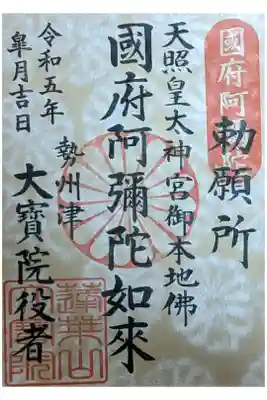 國府阿彌陀
勅願所
天照皇太神宮御本地佛
國府阿彌陀如來
勢州津
大寶院役者
令和五年
皐月吉日
蓮華山